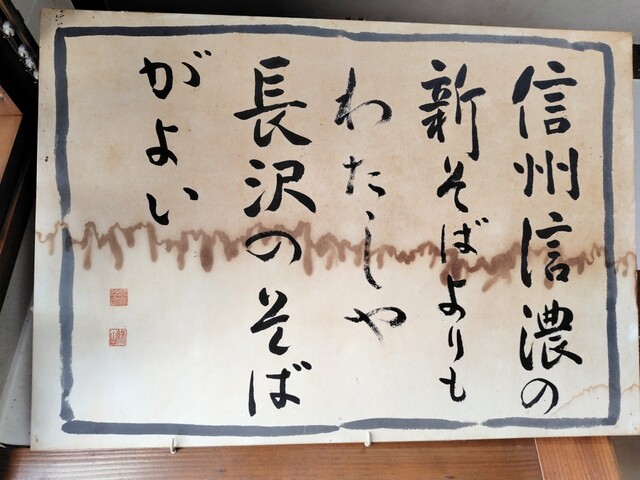 信州信濃の
新そばよりも
わたしや
長沢のそば
がよい